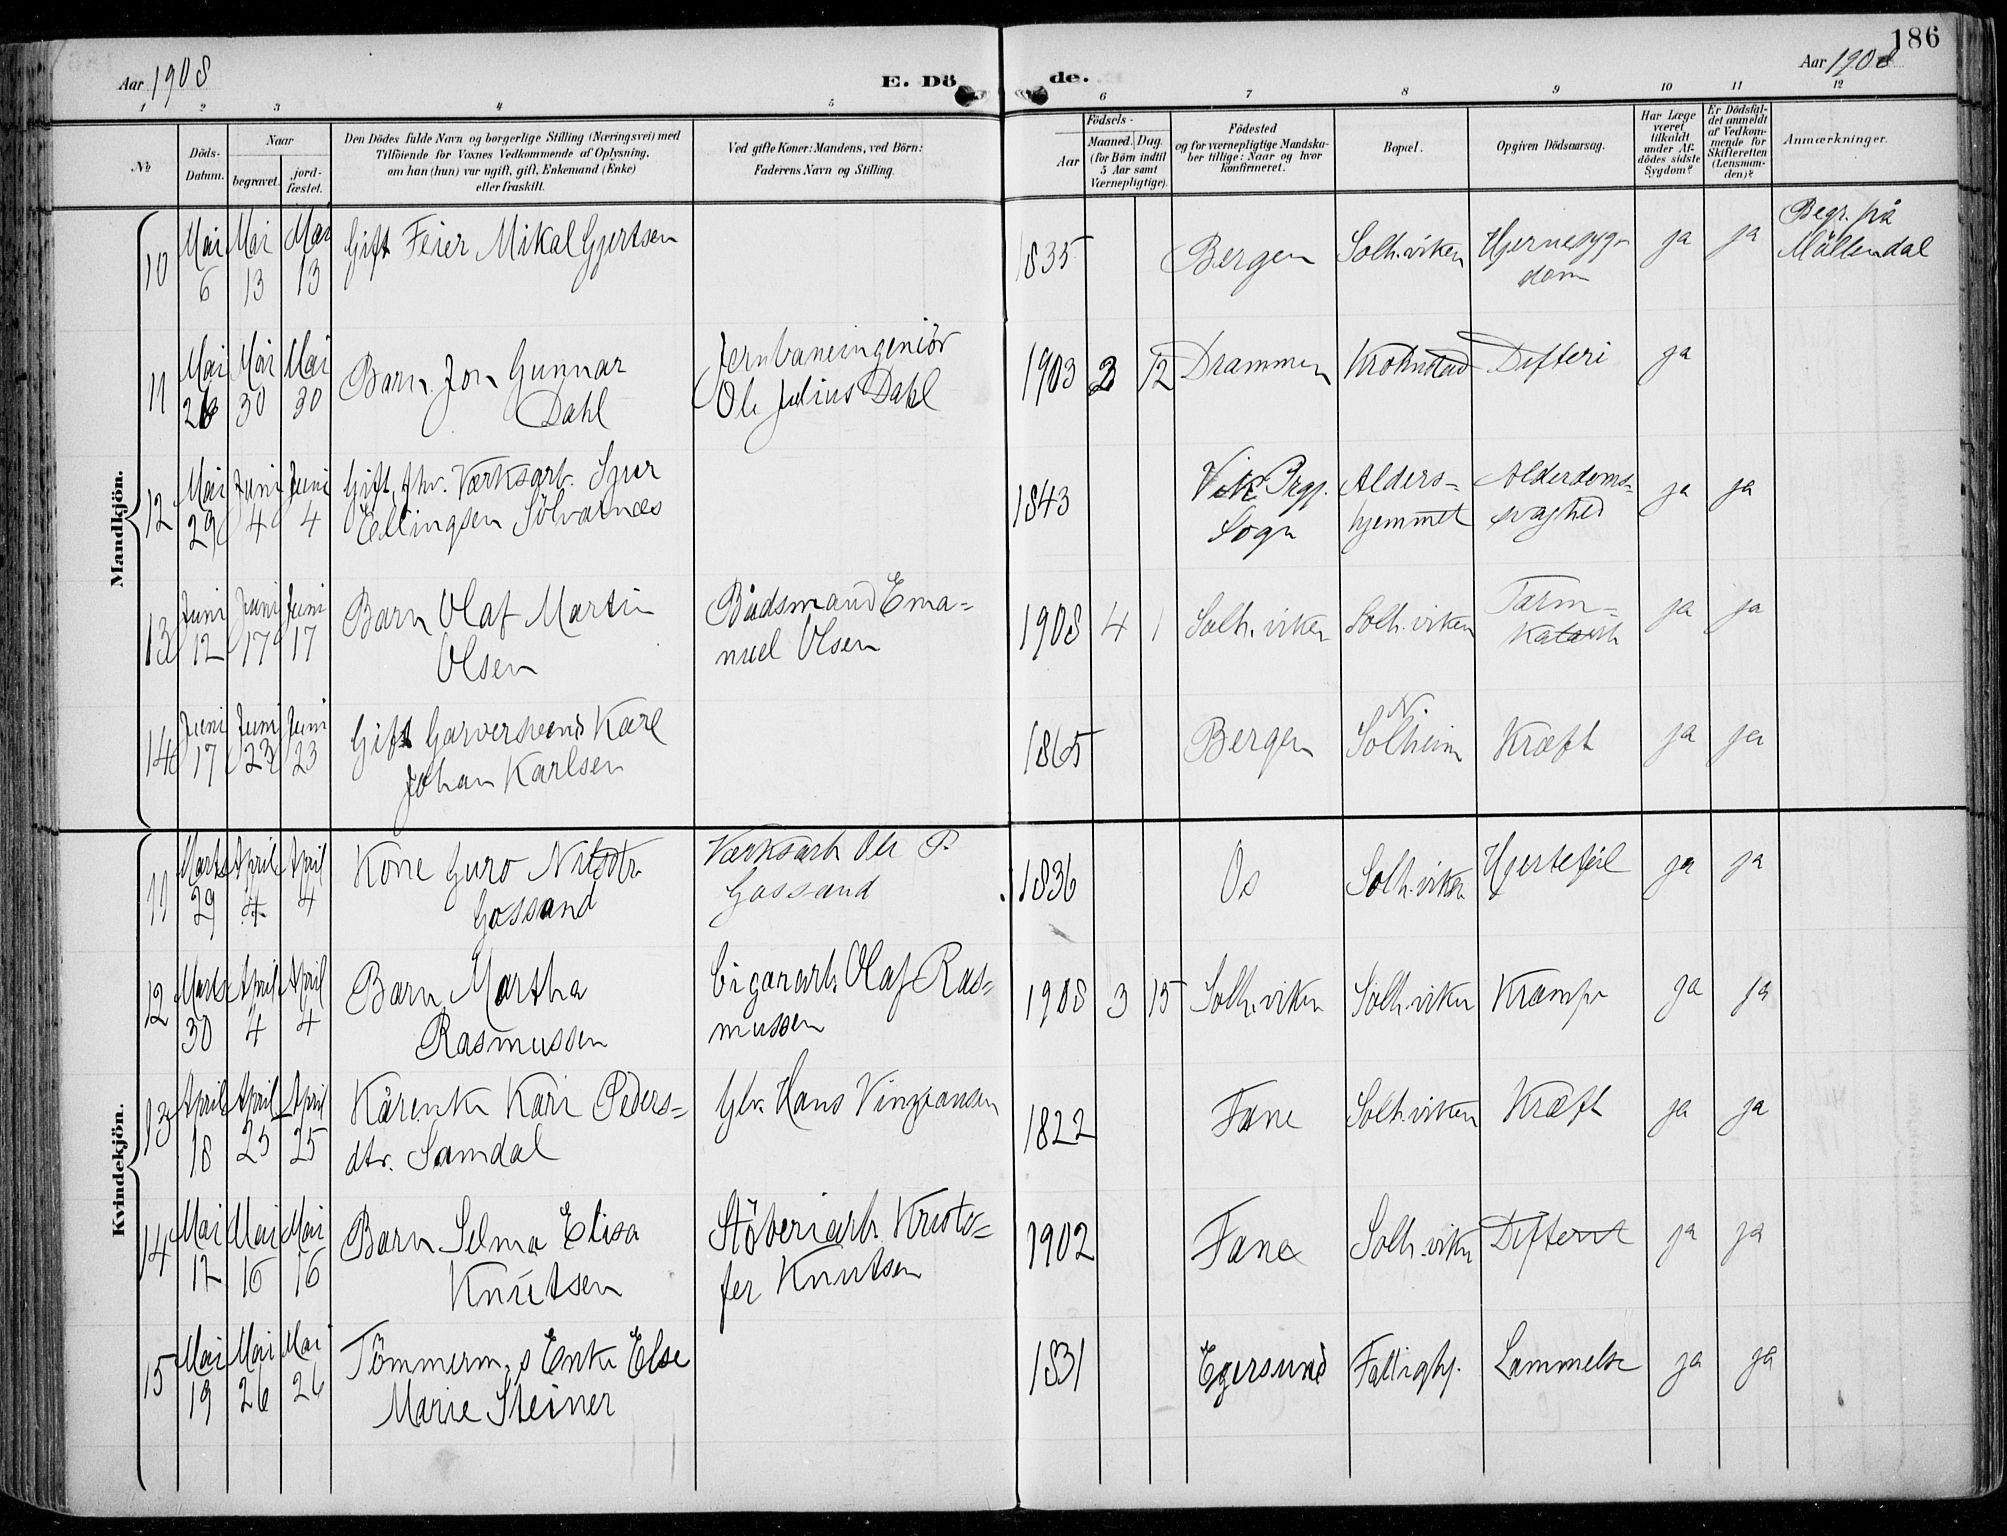 186
Aar 1908
E. Dö
de.
Aar 1908
1 2 3 4 5 6 7 8 9 10 11 12
No
Döds-
Datum.
Naar
begravet.
jord-
fæstet.
Den Dödes fulde Navn og borgerlige Stilling (Næringsvei) med
Tilföiende for Voxnes Vedkommende af Oplysning,
om han (hun) var ugift, gift, Enkemand (Enke)
eller fraskilt.
Ved gifte Koner: Mandens, ved Börn:
Faderens Navn og Stilling.
Födsels-
Aar
Maaned. Dag.
(for Börn indtil
5 Aar samt
Værnepligtige).
Födested
og for værnepligtige Mandska-
ber tillige: Naar og hvor
konfirmeret.
Bopæl.
Opgiven Dödsaarsag.
Har Læge
været
tilkaldt
under Af-
dödes sidste
Sygdom?
Er Dödsfal-
det anmeldt
af Vedkom-
mende for
Skifteretten
(Lensman-
den)?
Anmærkninger.
Mandkjön.
10 Mai 6 Mai 13 Mai 13 Gift Feier Mikal Gjertsen 1835 Bergen Solh.viken Hjernesyg-
dom ja ja Begr. på
Möllendal
11 Mai 26 Mai 30 Mai 30 Barn Jon Gunnar
Dahl Jernbaneingeniör
Ole Julius Dahl 1903 3 12 Drammen Krohnstad Difteri ja
12 Mai 29 Juni 4 Juni 4 Gift, fhv. Værksarb. Sjur
Ellingsen Sölvatnæs 1843 Vik Prgj.
Sogn Alders-
hjemmet Alderdoms-
svaghed ja ja
13 Juni 12 Juni 17 Juni 17 Barn Olaf Martin
Olsen Bådsmand Ema-
nuel Olsen 1908 4 1 Solh.viken Solh.viken Tarm-
katarrh ja ja
14 Juni 17 Juni 23 Juni 23 Gift Garversvend Karl
Johan Karlsen 1865 Bergen N.
Solheim Kræft ja ja
Kvindekjön.
11 Marts 29 April 4 April 4 Kone Guro Nilsdtr.
Gossand Værksarb. Ole P.
Gossand 1836 Os Solh.viken Hjertefeil ja ja
12 Marts 30 April 4 April 4 Barn Martha
Rasmussen Cigararb. Olaf Ras-
mussen 1908 3 15 Solh.viken Solh.viken Krampe ja ja
13 April 18 April 25 April 25 Kårenke Kari Peders-
dtr. Samdal Hans 1822 Fane Solh.viken Kræft ja ja
14 Mai 12 Mai 16 Mai 16 Barn Selma Elisa
Knutsen Stöberiarb. Kristo-
fer Knutsen 1902 Fane Solh.viken Difterit ja ja
15 Mai 19 Mai 26 Mai 26 Tömmerm.s Enke Else
Marie Steiner 1831 Egersund Fattighj. Lammelse ja ja